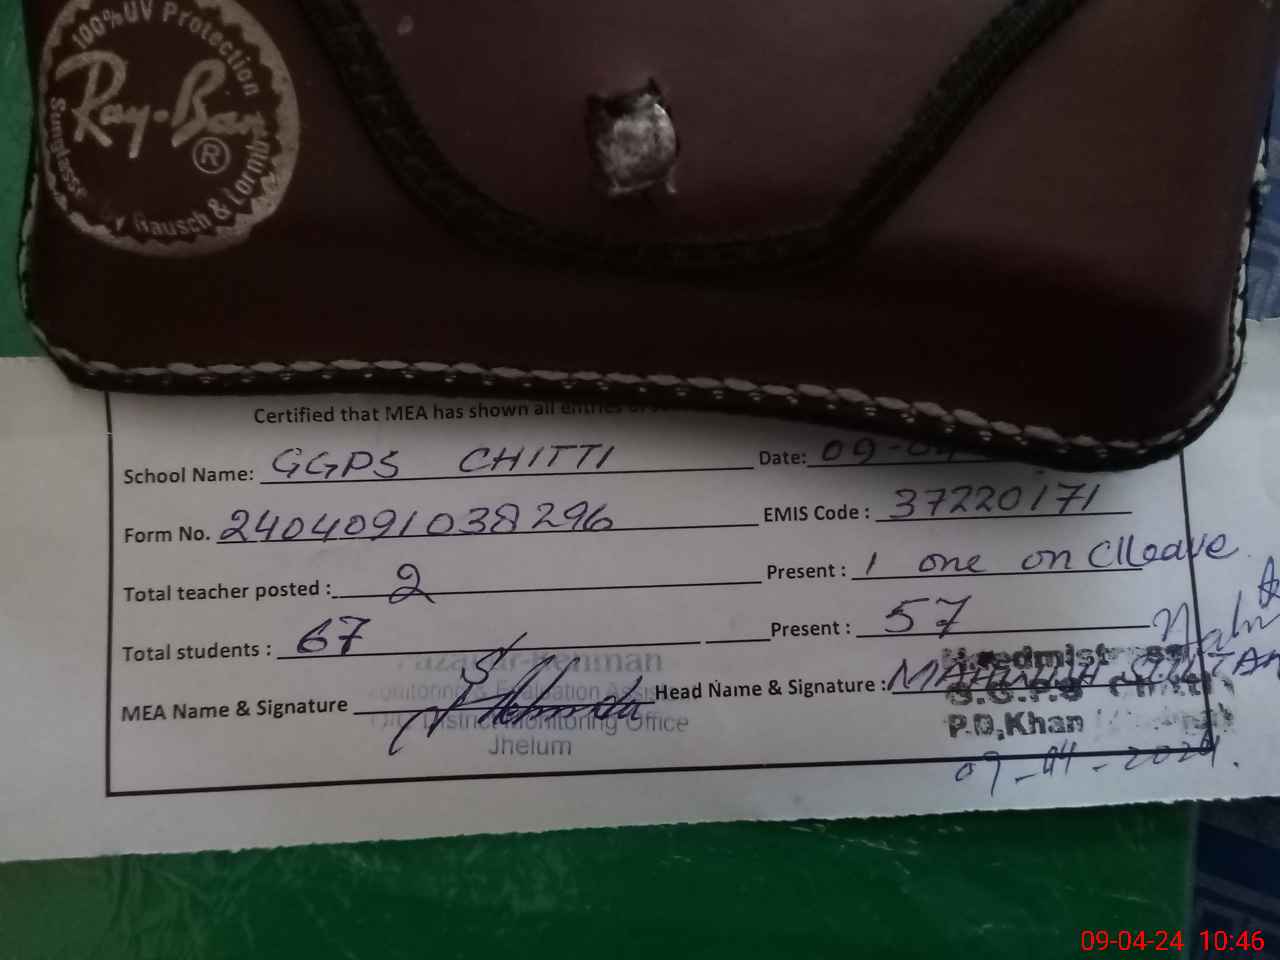 100% UV Protection
Ray-Ban ®
Sunglasses by Bausch & Lomb
Certified that MEA has shown all entries
School Name: GGPS CHITTI Date: 09-04
Form No. 2404091038296 EMIS Code : 37220171
Total teacher posted : 2 Present : 1 one on Clleave
Total students : 67 Present : 57
MEA Name & Signature Head Name & Signature :
Rehman
Monitoring & Evaluation Assis
District Monitoring Office
Jhelum
Headmistress
G.G.P.S
P.D,Khan
09-04-2024.
09-04-24 10:46